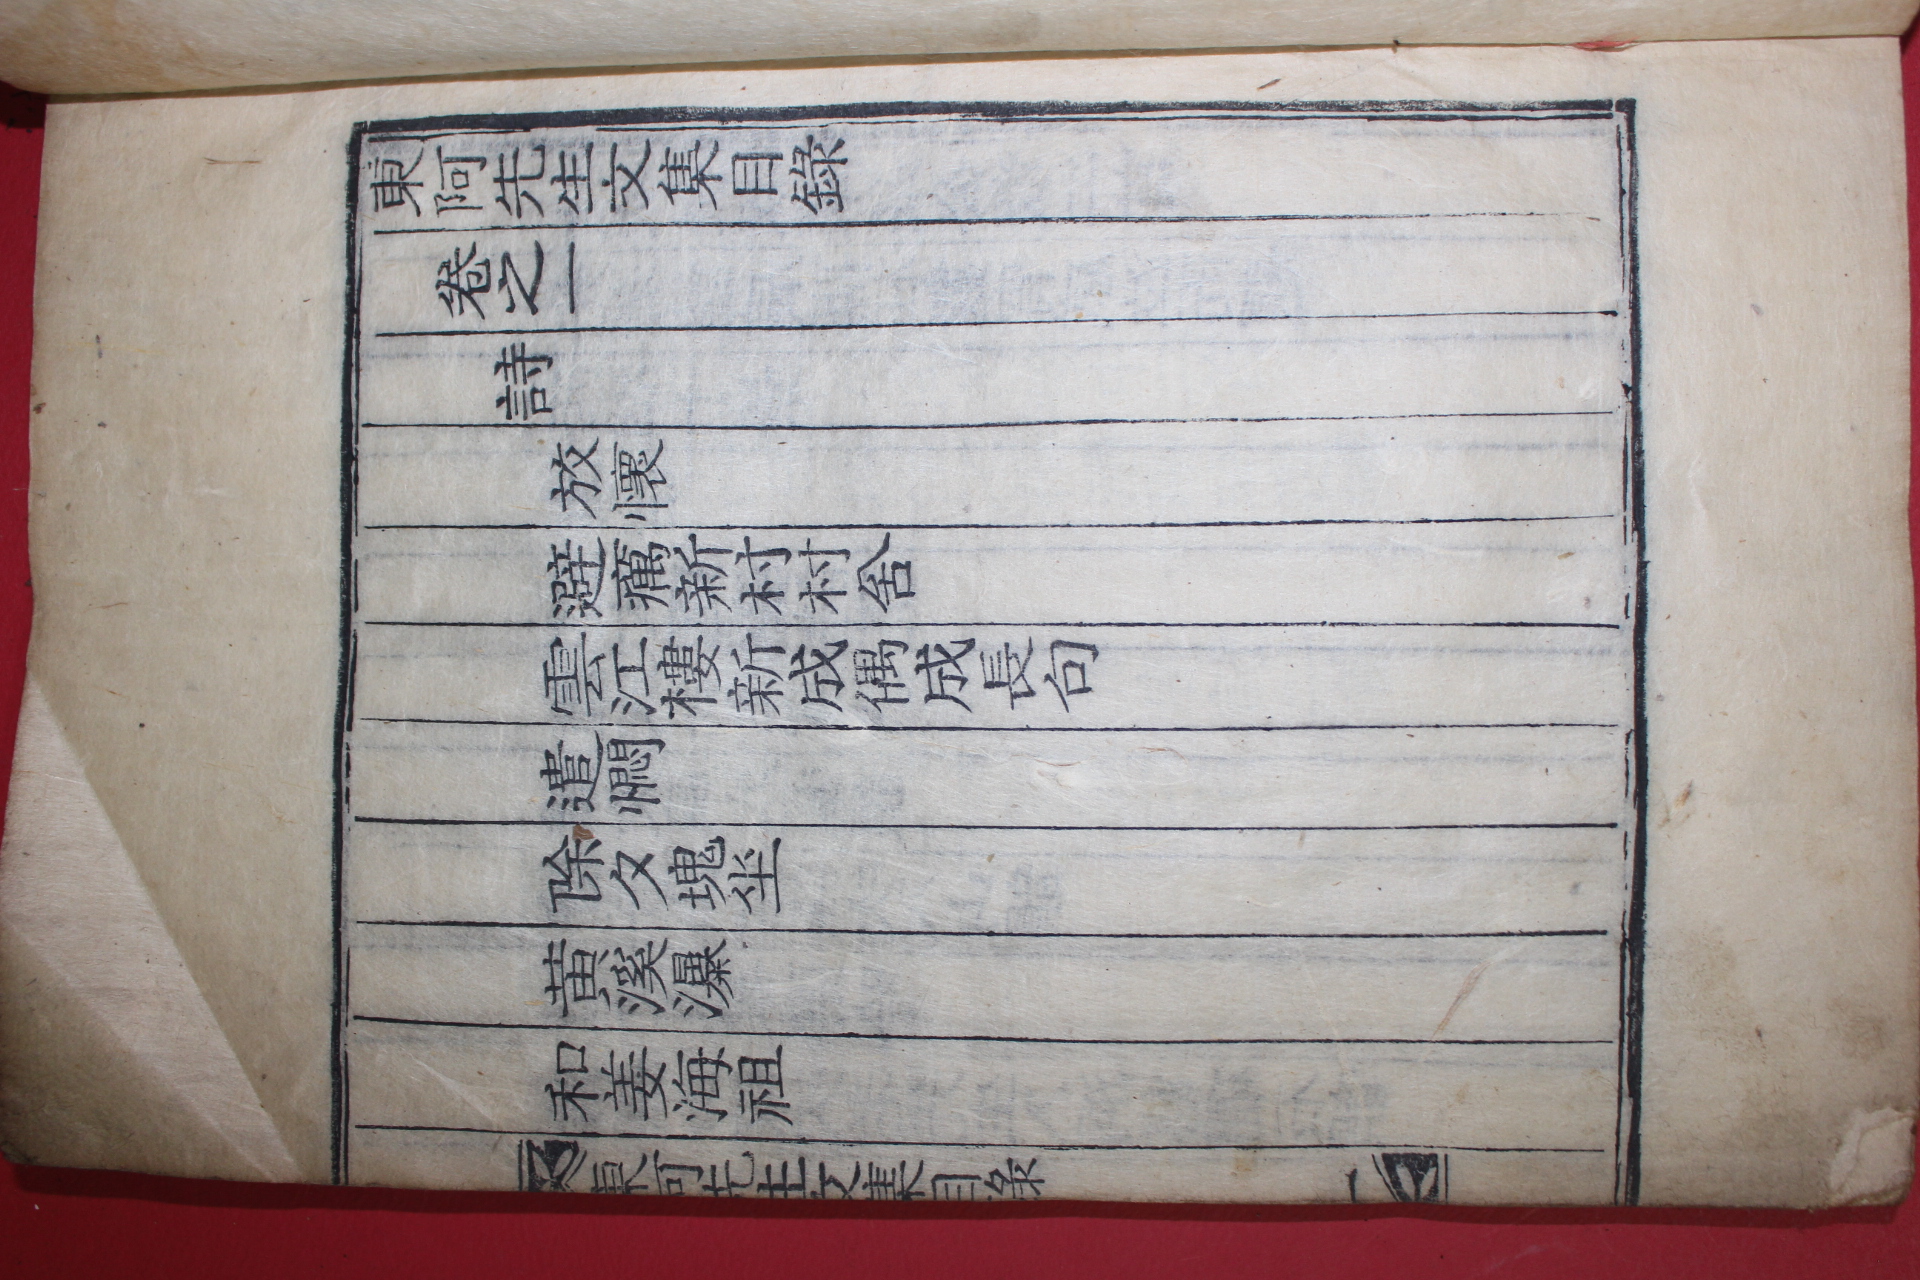 東阿先生文集目錄
卷之一
詩
放懷
避癘新村村舍
雲江樓新成偶成長句
遣憫
除夕塊坐
黃溪瀑
和姜海祖
東阿先生文集目錄 一